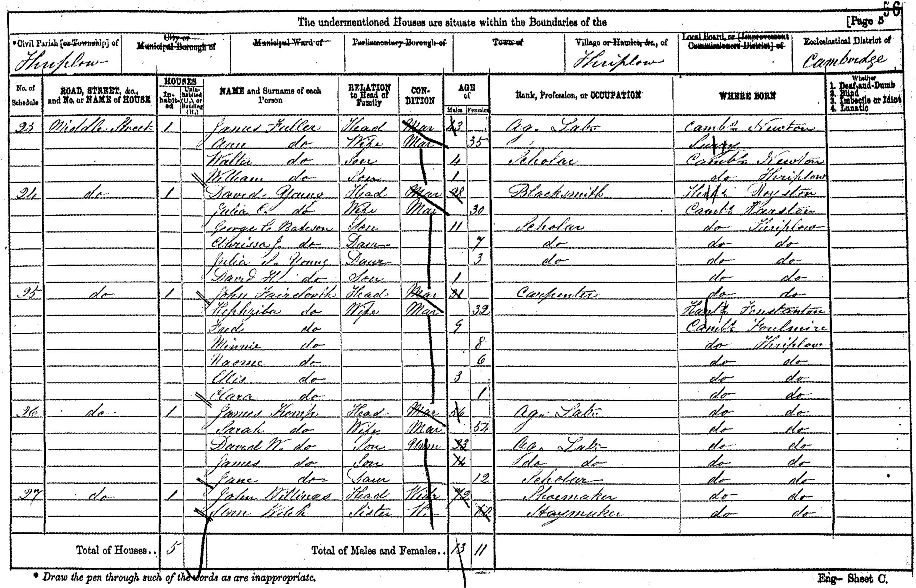 56
The undermentioned Houses are situate within the Boundaries of the [Page 5
*Civil Parish [or Township] of City or Municipal Borough of Municipal Ward of Parliamentary Borough of Town of Village or Hamlet, &c., of Local Board, or [Improvement Commissioners District] of Ecclesiastical District of
Thriplow Thriplow Cambridge
No. of Schedule ROAD, STREET, &c., and No. or NAME of HOUSE HOUSES Inhabited Uninhabited (U.), or Building (B.) NAME and Surname of each Person RELATION to Head of Family CONDITION AGE of Males Females Rank, Profession, or OCCUPATION WHERE BORN Whether 1. Deaf-and-Dumb 2. Blind 3. Imbecile or Idiot 4. Lunatic
23 Middle Street 1 James Fuller Head Mar 43 Ag. Lab. Camb. Newton
Ann do Wife Mar 35
Walter do Son 4 Scholar Camb. Newton
William do Son 1 do Thriplow
24 do 1 David Young Head Mar 28 Blacksmith Royston
Julia C. do Wife Mar 30 Camb. Harston
George Son 11 Scholar do Thriplow
do Daur 7 do do do
Julia S. Young Daur 3 do do do
David H. do Son 1 do do
25 do 1 John Head Mar Carpenter do do
do Wife Mar 32 Fenstanton
do 9 Camb. Foulmire
Minnie do 8 do Thriplow
do 6 do do
Ellis do 3 do do
Clara do 1 do do
26 do 1 James Kemp Head Mar Ag. Lab. do do
Sarah do Wife Mar 52 do do
David W. do Son Unm Ag. Lab. do do
James do Son 14 do do do do
Jane do 12 Scholar do do
27 do 1 John Willings Head Widr 72 Shoemaker do do
Sister W. do do
Total of Houses.. 5 Total of Males and Females.. 13 11
* Draw the pen through such of the words as are inappropriate. Eng— Sheet C.